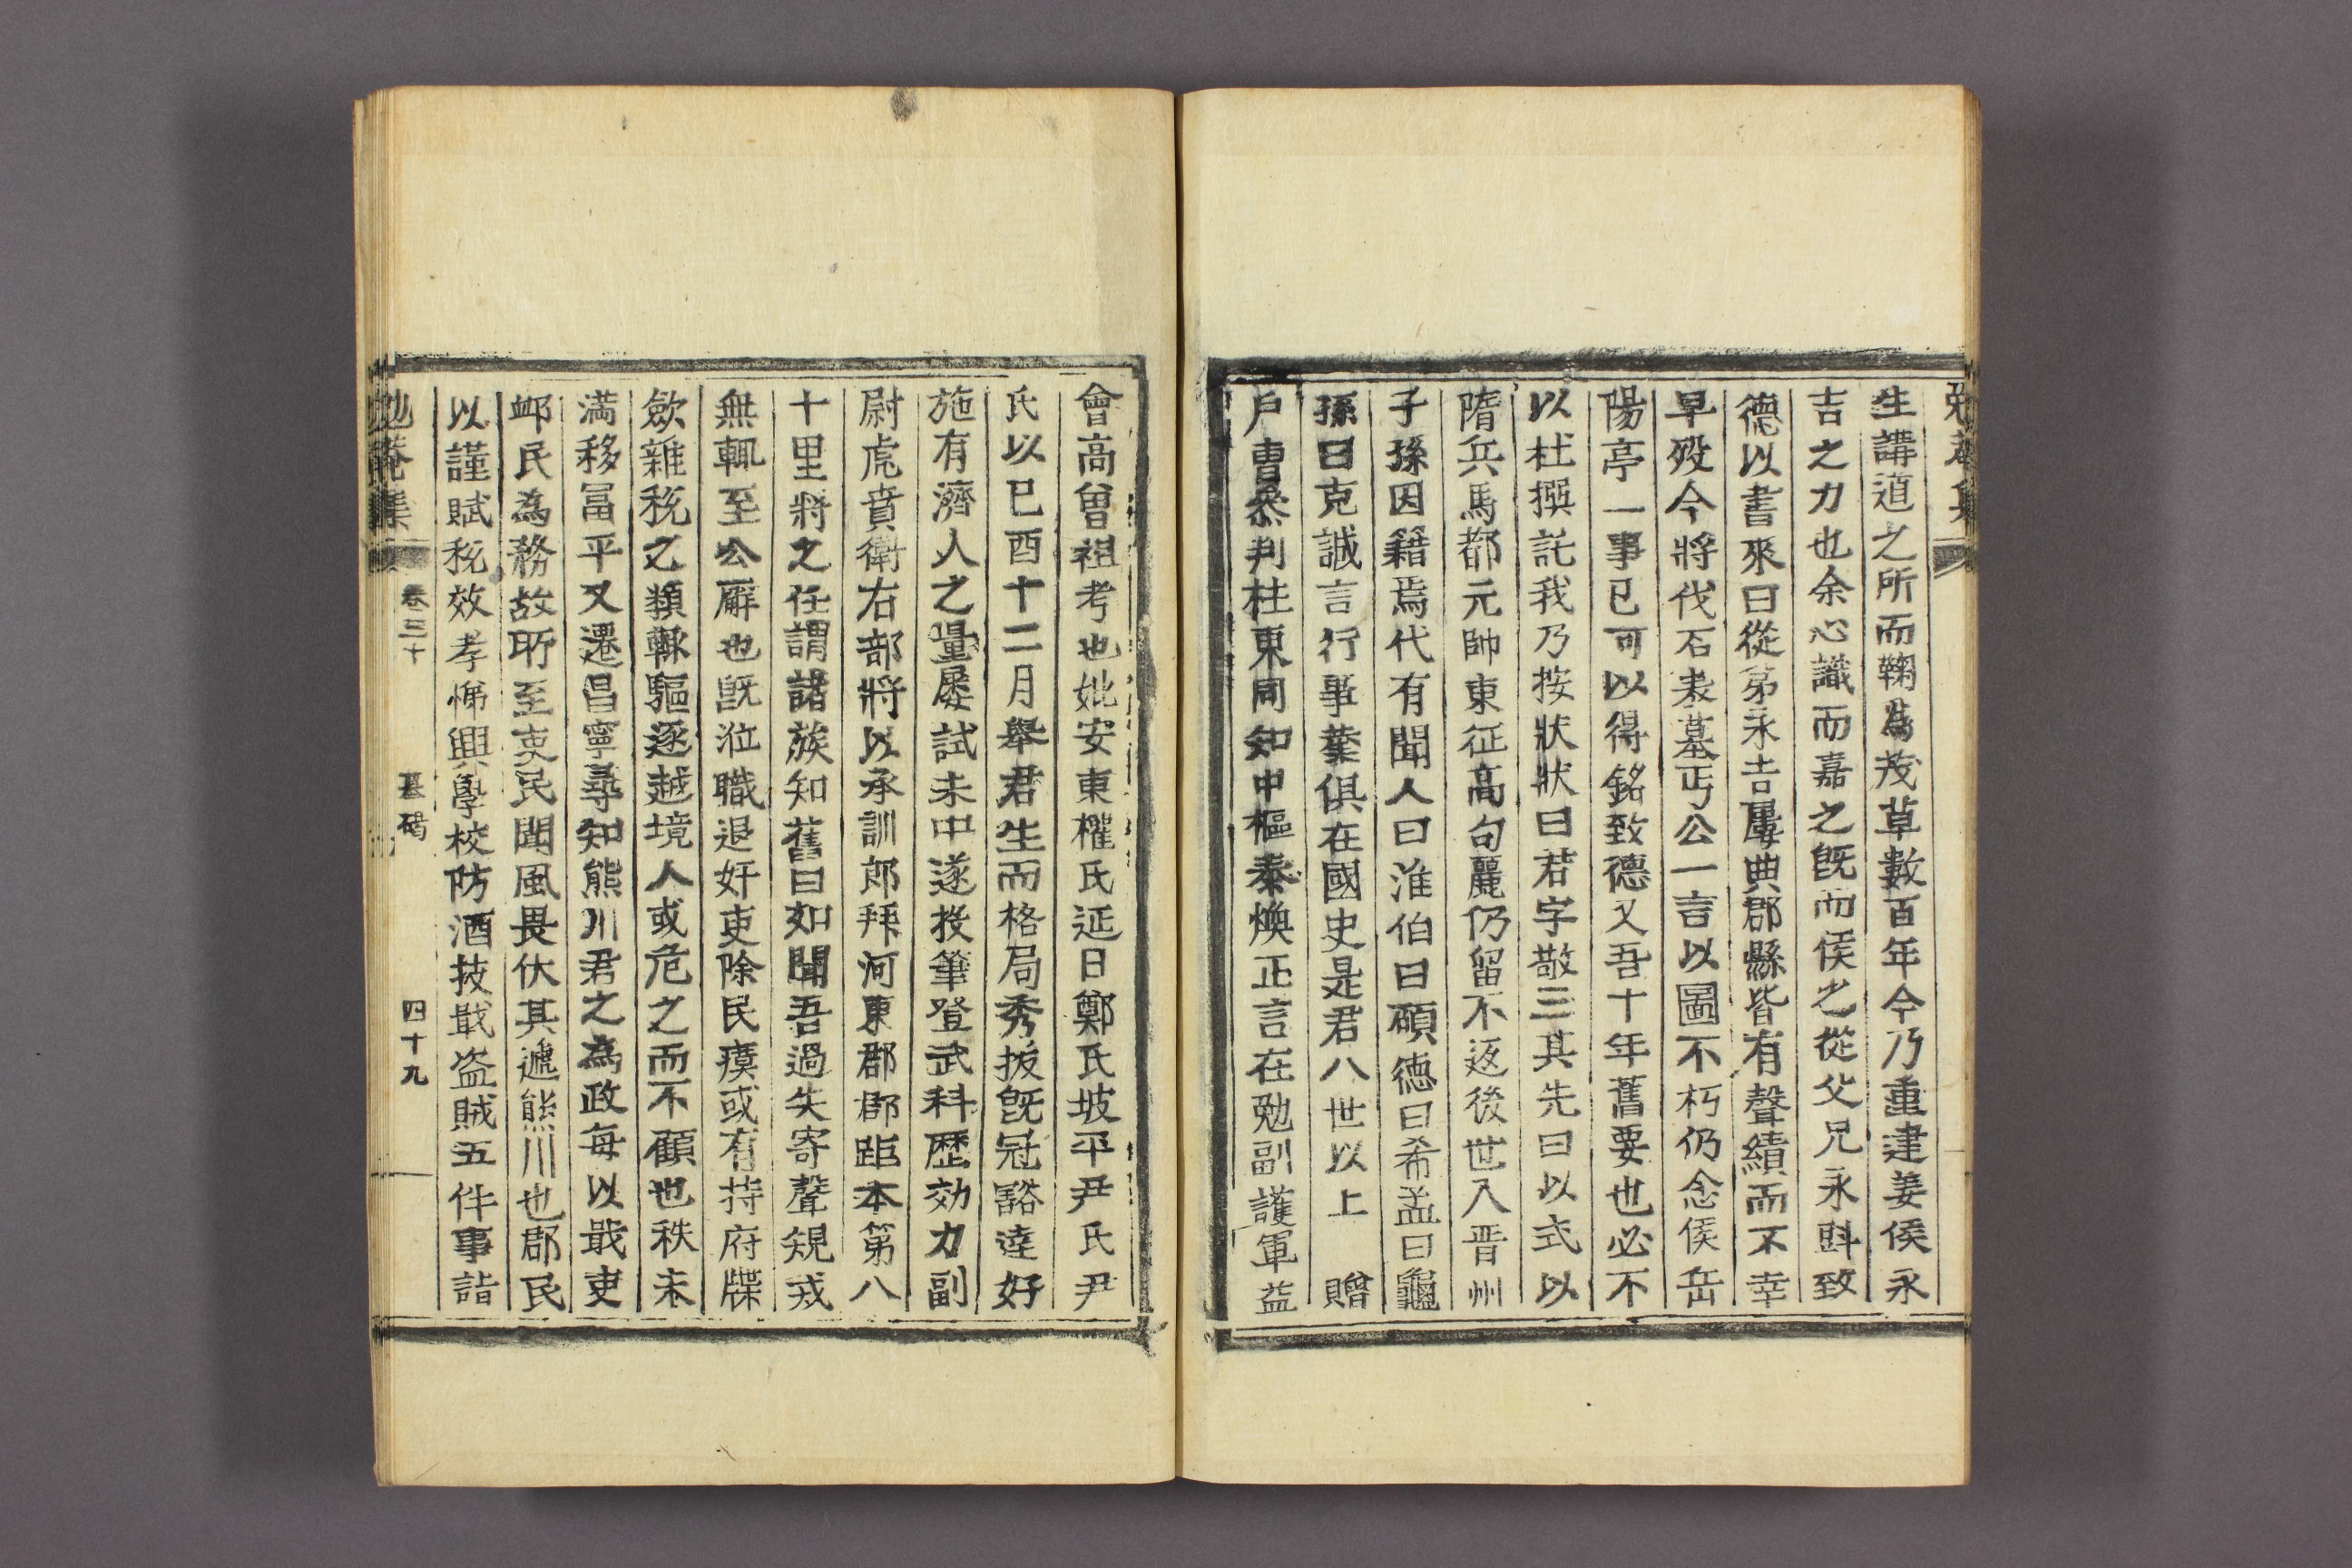 生講道之所而鞠為茂草數百年今乃重建姜侯永
吉之力也余心識而嘉之旣而侯之從父兄永㪷致
德以書來曰從弟永吉屢典郡縣皆有聲績而不幸
早歿今將伐石表墓丐公一言以圖不朽仍念侯岳
陽亭一事已可以得銘致德又吾十年舊要也必不
以杜撰託我乃按狀狀曰君字敬三其先曰以式以
隋兵馬都元帥東征高句麗仍留不返後世入晋州
子孫因籍焉代有聞人曰淮伯曰碩德曰希孟曰龜
孫曰克誠言行事業俱在國史是君八世以上 贈
戶曹叅判柱東同知中樞泰煥正言在勉副護軍益
會高曾祖考也妣安東權氏延日鄭氏坡平尹氏尹
氏以已酉十二月舉君生而格局秀拔旣冠豁達好
施有濟人之量屢試未中遂投筆登武科歷効力副
尉虎賁衛右部將以承訓郎拜河東郡郡距本第八
十里將之任謂諸族知舊曰如聞吾過失寄聲規戒
無輒至公廨也旣涖職退奸吏除民瘼或有持府牒
歛雜稅之類輒驅逐越境人或危之而不顧也秩未
滿移富平又遷昌寧尋知熊川君之為政每以戢吏
䘏民為務故所至吏民聞風畏伏其遞熊川也郡民
以謹賦稅效孝悌興學校防酒技戢盜賊五件事詣
勉菴集 卷三十 墓碣 四十九